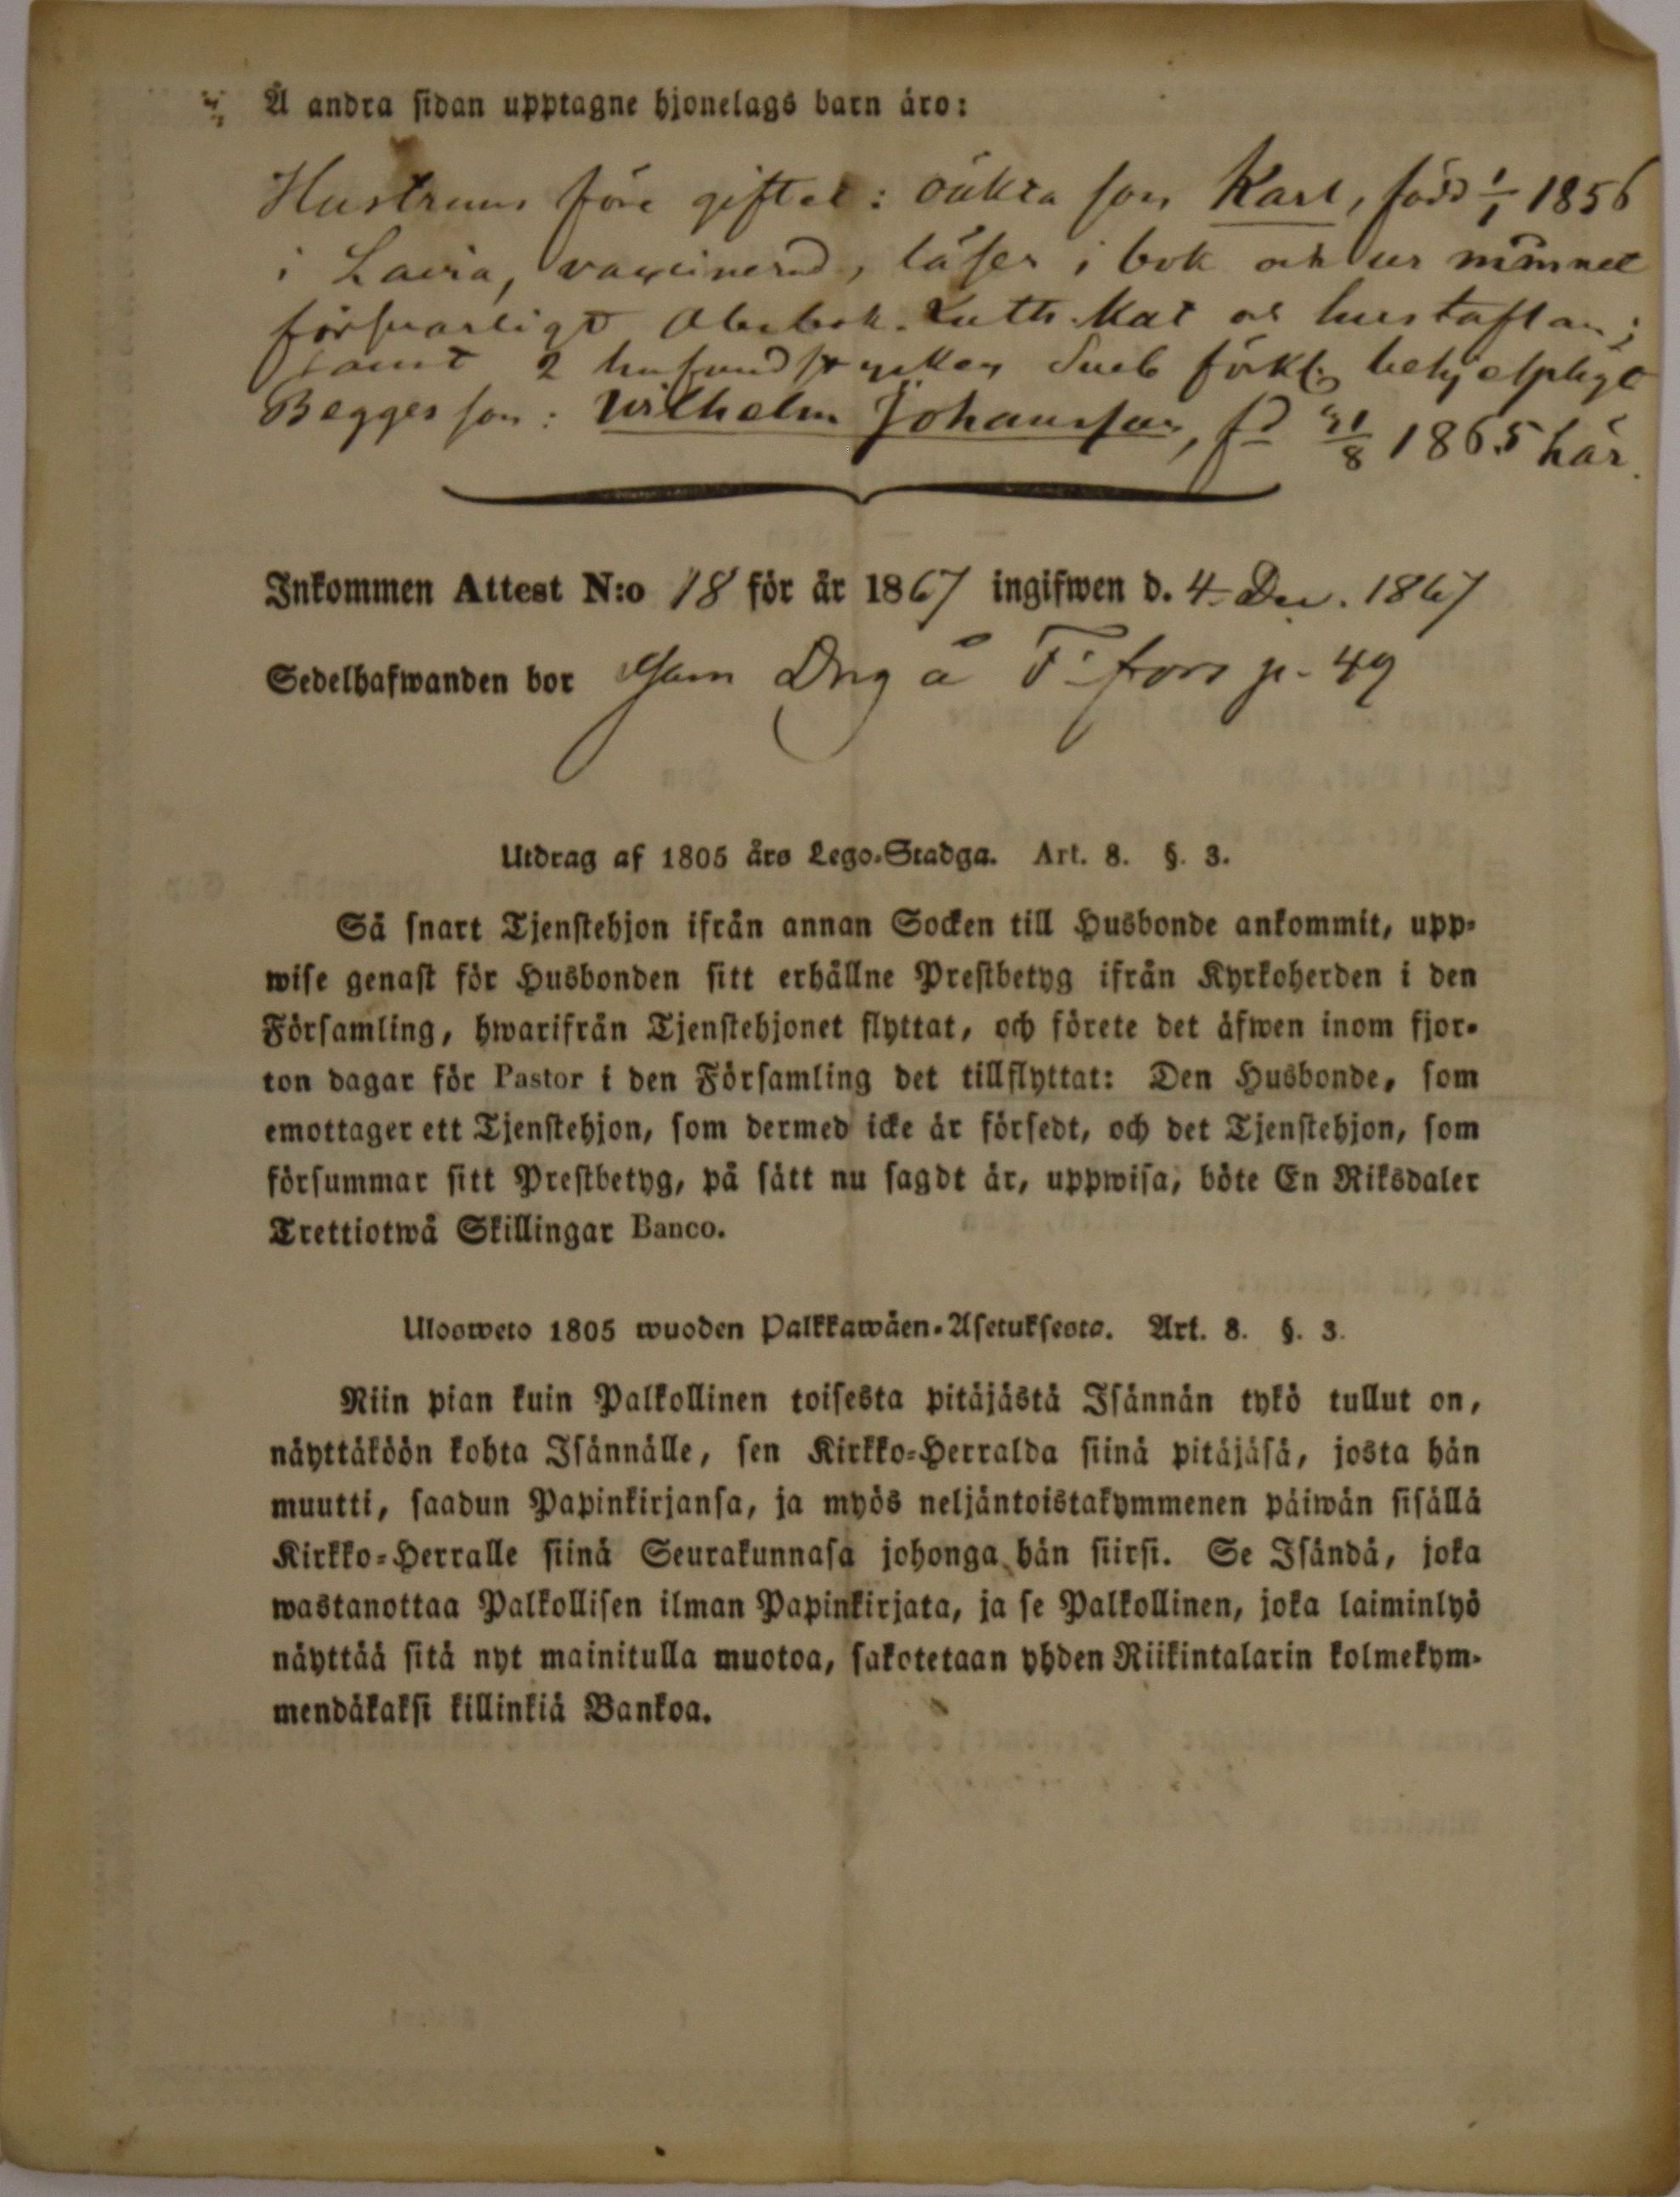 Å andra sidan upptagne hjonelags barn äro:
Hustruns före giftet: oäkta son Karl, född 1/1 1856
i Lavia, vaxinerad, läser i bok och ur minnet
försvarligt Abcbok. Luth. Kat och hustaflan;
samt 2 hufvudstycken Sveb förkl. behjelpligt
Begges son: Wilhelm Johansson, fd 21/8 1865 här.
Inkommen Attest N:o 18 för år 1867 ingifwen d. 4 Dec. 1867
Sedelhafwanden bor som Drg å F:fors p. 49
Utdrag af 1805 års Lego-Stadga. Art. 8. §. 3.
Så snart Tjenstehjon ifrån annan Socken till Husbonde ankommit, upp-
wise genast för Husbonden sitt erhållne Prestbetyg ifrån Kyrkoherden i den
Församling, hwarifrån Tjenstehjonet flyttat, och förete det äfwen inom fjor-
ton dagar för Pastor i den Församling det tillflyttat: Den Husbonde, som
emottager ett Tjenstehjon, som dermed icke är försedt, och det Tjenstehjon, som
försummar sitt Prestbetyg, på sätt nu sagdt är, uppwisa, böte En Riksdaler
Trettiotwå Skillingar Banco.
Ulosweto 1805 wuoden Palkkawäen-Asetuksesta. Art. 8. §. 3.
Niin pian kuin Palkollinen toisesta pitäjästä Isännän tykö tullut on,
näyttäköön kohta Isännälle, sen Kirkko-Herralda siinä pitäjäsä, josta hän
muutti, saadun Papinkirjansa, ja myös neljäntoistakymmenen päiwän sisällä
Kirkko-Herralle siinä Seurakunnasa johonga hän siirsi. Se Isändä, joka
wastanottaa Palkollisen ilman Papinkirjata, ja se Palkollinen, joka laiminlyö
näyttää sitä nyt mainitulla muotoa, sakotetaan yhden Riikintalarin kolmekym-
mendäkaksi killinkiä Bankoa.